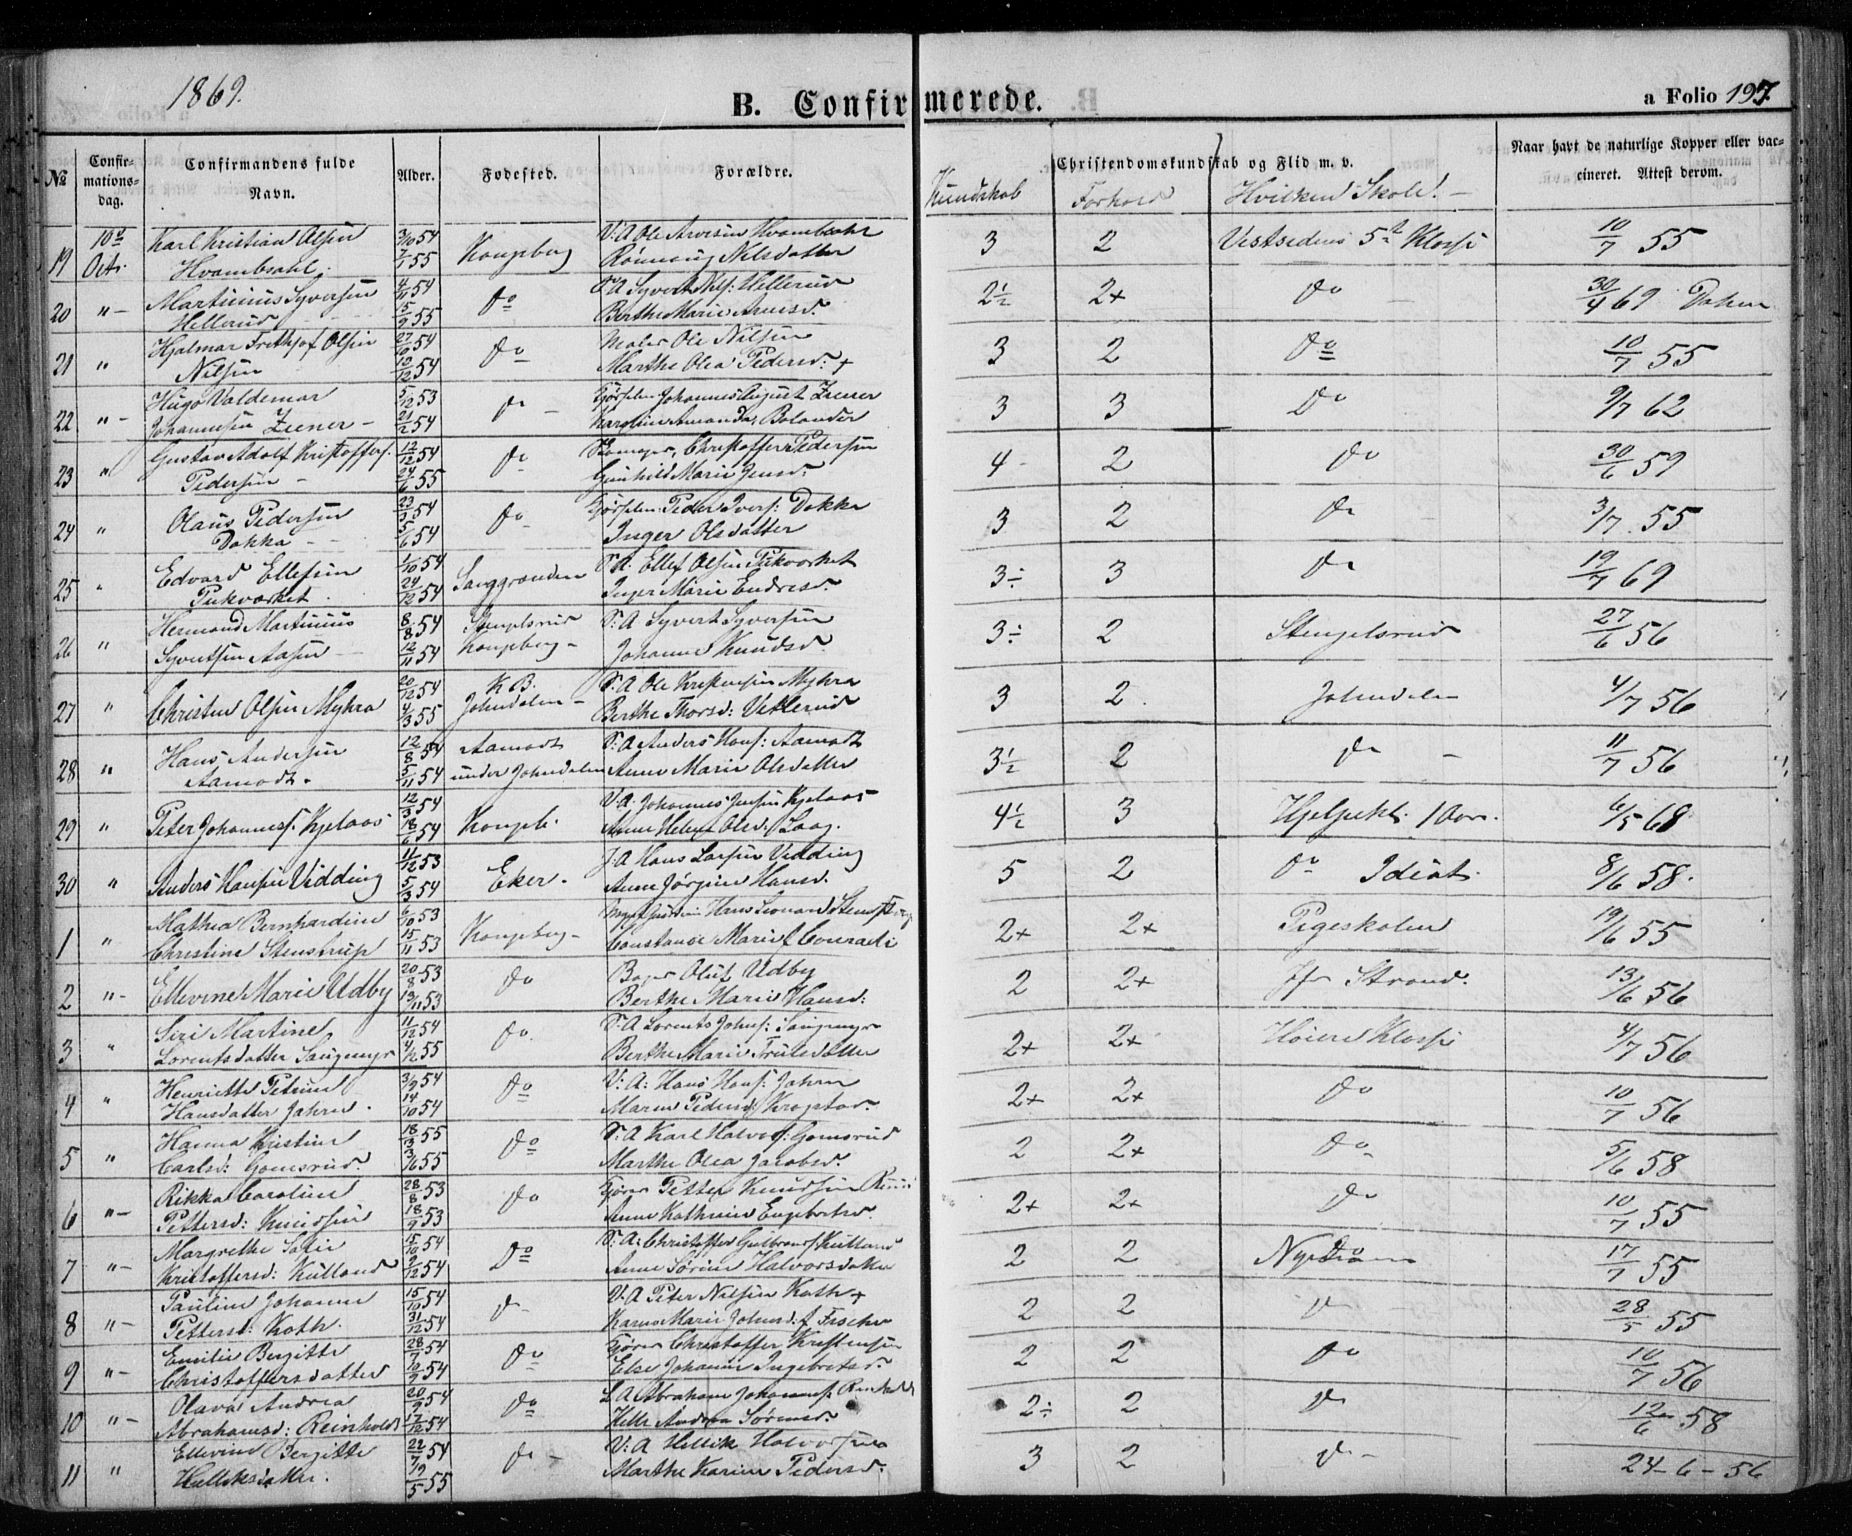 1869.
B. Confirmerede.
a Folio 197.
№ Confirmationsdag. Confirmandens fulde Navn. Alder. Fødested. Forældre. Christendomskundskab og Flid m. v. Naar havt de naturlige Kopper eller vaccineret. Attest derom.
Kundskab Forhold Hvilken Skole.
19 10de Octr. Karl Kristian Olsen 54 Kongsberg V: A Ole 3 2 Vestsidens 5te Klasse 10/7 55
Hvambsahl. 55 Nilsdatter
20 " Martinius Syversen 4/11 54 Do S. A Syvert Nils: Hellerud 2½ 2+ Do 30/4 69
Hellerud 5/9 55 Berthe Marie
21 " Hjalmar Frithjof Olsen 54 Do Maler Ole Nilsen 3 2 Do 10/7 55
Nilsen 12/12 54 Marthe Olea Pedersd: +
22 " Hugo Valdemar 5/12 53 Do Johannes August Zener 3 3 Do 9/7 62
Johannesen Zener 21/2 54 Karoline Amanda Bolander
23 " Gustav Adolf Kristoffers. 12/12 54 Do Skomager, Christoffer Pedersen 4 2 Do 30/6 59
Pedersen 24/6 55 Gunhild Marie Jensd.
24 " Olaus Pedersen 54 Do Peder Ivers: Dokka 3 2 Do 3/7 55
Dokka 5/6 54 Inger Olsdatter
25 " Edvard Ellefsen 1/10 54 Saggrenden S. A. Ellef Olsen Pukverket 3÷ 3 Do 19/7 69
Pukværket. 24/12 54 Inger Marie Endresd.
26 " Hermand Martinius 8/8 54 Stengelsrud S: A Syvert Syversen 3÷ 2 Stengelsrud 27/6 56
Syvertsen Aasen 12/11 54 Kongsberg Johanne Knudsd.
27 " Christen Olsen Myhra 20/12 54 K B. S. A Ole Kristensen Myhra 3 2 Johndalen 4/7 56
4/3 55 Johndalen Berthe Thorsd:
28 " Hans Andersen 12/8 54 Aamodt S: A Anders Hans: Aamodt 3½ 2 Do 11/7 56
Aamodt. 5/11 54 under Johndalen Anne Marie Olsdatter
29 " Peter Johannes. Kjelaas 12/3 54 Kongsb. V. A. Johannes Jensen Kjelaas 4½ 3 6/5 68
18/6 54 Anne Helene Olsd. Laag.
30 " Anders Hansen Vidding 11/12 53 Eker. Hans Larsen Vidding 5 2 Do Idiot. 8/6 58.
5/3 54 Anne Jørgine Hansd.
1 " Mathea Bernhardine 6/10 53 Kongsberg Hans Leonard 2+ 2+ Pigeskolen 19/6 55
Christine Stenstrup 15/11 53 Constance Marie f Conradi
2 " Ellevine Marie Udby 20/8 53 Do Bager Oluf Udby 2 2+ Jfr Strand. 13/6 56
13/11 53 Berthe Marie Hansd:
3 " Siri Martine 11/12 54 Do. S: A Lorents Johns: Sangmyr 2+ 2+ Høiere Klasse 4/7 56
Lorentsdatter Sangmyr 4/2 55 Berthe Marie Trulsdatter
4 " Henriette Petrine 3/9 54 Do V: A: Hans Hans: Jahren 2+ 2+ Do 10/7 56
Hansdatter Jahren. 14/10 54 Maren Pedersd:
5 " Hanna Kristine 18/3 55 Do S: A Karl Halvors: Gomsrud 2 2+ Do 5/6 58
Carlsd: Gomsrud. 3/6 55 Marthe Olea Jacobsd.
6 " Rikka Caroline 28/8 53 Do Petter Knudsen 2+ 2+ Do 10/7 55
Pettersd: Knudsen 18/9 53 Anne Kathrine Engebretsd.
7 " Margrethe Sofie 15/10 54 Do S: A: Christoffer Gulbrands: Kulland 2 2 Do 17/7 55
Kristoffersd: Kulland 54 Anne Sørine Halvorsdatter
8 " Pauline Johanne 15/10 54 Do V. A Peter Nilsen Koth + 2 2 Do 28/5 55
Pettersd: Koth. 31/12 54 Karen Marie Johnsd: f Fischer
9 " Emilie Bergitte 28/7 54 Do Christoffer Kristensen 2 2 Do 10/7 56
Christoffersdatter 10/9 54 Else Johanne Ingebretsd.
10 " Olava Andrea 20/9 54 Do Abraham Johannes. Reinholdt 2÷ 2 Do 12/6 58
Abrahamsd: Reinholdt 17/12 54 Helle Andrea Sørensd.
11 " Ellevine Bergitte 22/7 54 Do V: A Hellik Halvorsen 3 2 Do 24-6-56
Helleksdatter. 19/5 55 Marthe Karine Pedersd: